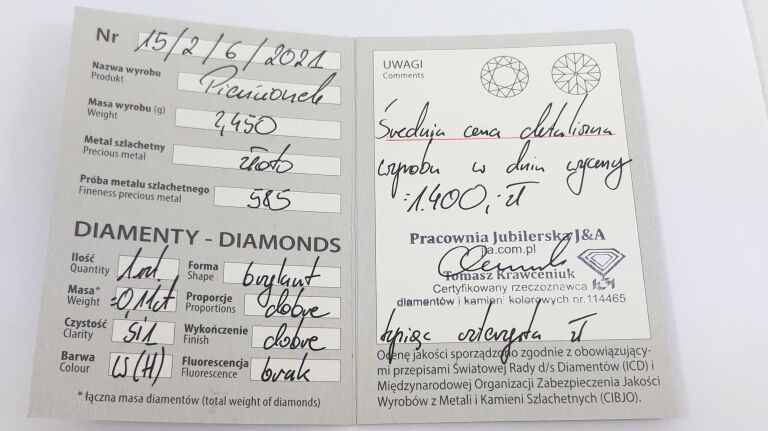 Nr 15/2/6/2021
Nazwa wyrobu Pierścionek
Produkt
Masa wyrobu (g) 2,450
Weight
Metal szlachetny złoto
Precious metal
Próba metalu szlachetnego 585
Fineness precious metal
DIAMENTY - DIAMONDS
Ilość 1szt Forma brylant
Quantity Shape
Masa* =0,11ct Proporcje dobre
Weight Proportions
Czystość Si1 Wykończenie dobre
Clarity Finish
Barwa (H) Fluorescencja brak
Colour Fluorescence
* łączna masa diamentów (total weight of diamonds)
UWAGI
Comments
Średnia cena detaliczna
wyrobu w dniu wyceny
=1.400,- zł
Pracownia Jubilerska J&A
ja.com.pl
Tomasz Krawceniuk
Certyfikowany rzeczoznawca
diamentów i kamieni kolorowych nr.114465
tysiąc czterysta zł
Ocenę jakości sporządzono zgodnie z obowiązujący-
mi przepisami Światowej Rady d/s Diamentów (ICD) i
Międzynarodowej Organizacji Zabezpieczenia Jakości
Wyrobów z Metali i Kamieni Szlachetnych (CIBJO).